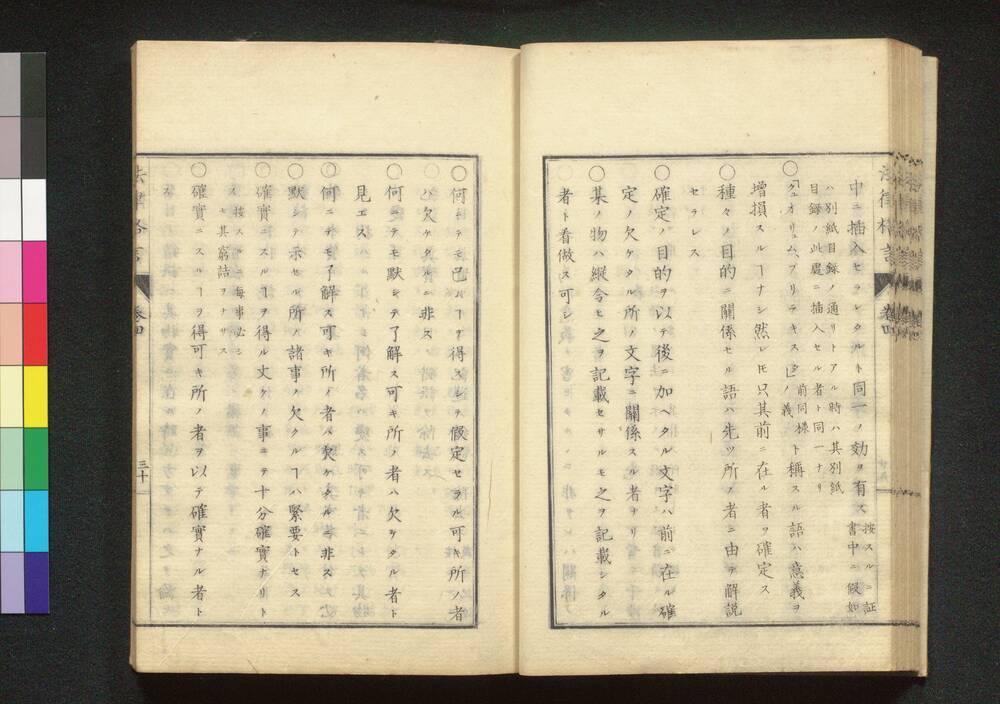 中ニ插入セラレタルト同一ノ効ヲ有ス 按スルニ証書中ニ假如
ハ別紙目録ノ通リトアル時ハ其別紙
目録ノ此處ニ插入セル者ト同一ナリ
○「クェオリュム、プリテキスタ」ノ義 前同樣 ト稱スル語ハ意義ヲ
増損スルヿナシ然レ𪜈只其前ニ在ル者ヲ確定ス
○種々ノ目的ニ關係セル語ハ先ツ所ノ者ニ由テ解説
セラレス
○確定ノ目的ヲ以テ後ニ加ヘタル文字ハ前ニ在ル確
定ノ欠ケタル所ノ文字ニ關係スル者ナリ
○某ノ物ハ縱令ヒ之ヲ記載セサルモ之ヲ記載シタル
者ト看做ス可シ
○何ニテモ已ムヿヲ得スシテ假定セラル可キ所ノ者
ハ欠ケタルニ非ス
○何ニテモ默シテ了解ス可キ所ノ者ハ欠ケタル者ト
見エス
○何ニテモ了解ス可キ所ノ者ハ欠ケタルニ非ス
○默シテ示セル所ハ諸事ノ欠クルヿハ緊要トセス
○確實ニスルヿヲ得ル丈ケノ事ニテ十分確實ナリト
ス 按スルニ毎事必シ
モ其窮詰ヲナサス
○確實ニスルヿヲ得可キ所ノ者ヲ以テ確實ナル者ト
法律格言
卷四
三十